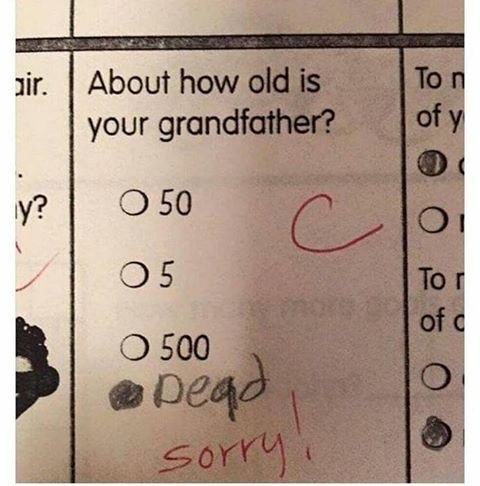 air.
y?
About how old is
your grandfather?
50
5
500
Dead
C
sorry!
To
of y
To
of